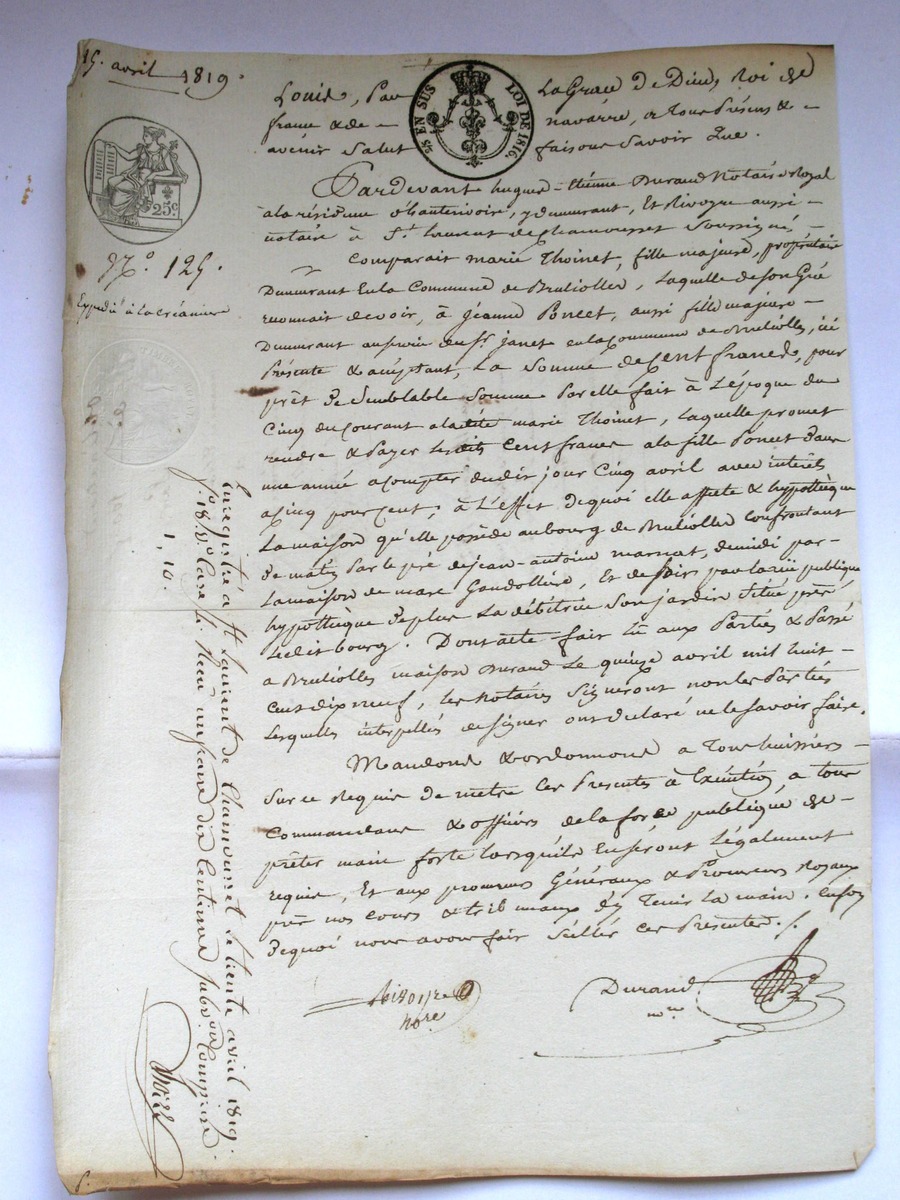 15. avril 1819.
Louis, Par La Grace De Dieu, Roi de
france & de navarre, a Tous Présens &
avenir Salut faisons Savoir Que.
25 EN SUS LOI DE 1816.
25 c
N.o 125.
Expédié à la créancière
Pardevant hugues-étienne Durand Notaire Royal
à la résidence , y demeurant, Et aussi
notaire à S.t Laurent de Chamousset Soussignés
Comparait marie Thoinet, fille majeure, propriétaire
Demeurant En la Commune de Brullioles, Laquelle de son Gré
reconnait devoir, à jeanne Poncet, aussi fille majeure
Demeurant au janet en la commune de Brullioles, ici
Présente & acceptant, La Somme de Cent francs, pour
prêt De Semblable Somme Par elle fait à L'époque du
Cinq du Courant a la dite marie Thoinet, Laquelle promet
rendre & Payer Lesdits Cent francs a la fille Poncet Dans
une année acompter dudit jour Cinq avril avec intérêts
a Cinq pour Cent; à L'effet de quoi elle affecte & hypothèque
La maison qu'elle possède au bourg de Brullioles Confrontant
De matin Par le pré de jean-antoine , de midi par
La maison de marc , Et de soir par la rüe publique
hypothèque De plus La débitrice Son jardin Situé près
Ledit bourg. Dont acte fait lû aux Parties & Passé
a Brullioles maison Durand Le quinze avril mil huit
Cent dix neuf, les Notaires Signeront non les Parties
Lesquelles interpellés de signer ont déclaré ne le savoir faire.
Mandons & ordonnons a Tous huissiers
Sur ce Requis De mettre les Présentes à Exécution, a tous
Commandans & officiers de la force publique de
prêter main forte lorsqu'ils En seront Légalement
requis, Et aux procureurs Généraux & Procureurs Royaux
près nos Cours & tribunaux d'y Tenir La main. En foi
De quoi nous avons fait Sceller Ces Présentes.
nore
Durand
Enregistré à St Laurent de Chamousset le trente avril 1819.
f.o 18. V.o Case Reçu un franc dix Centimes Subv.on Comprise.
1, 10.